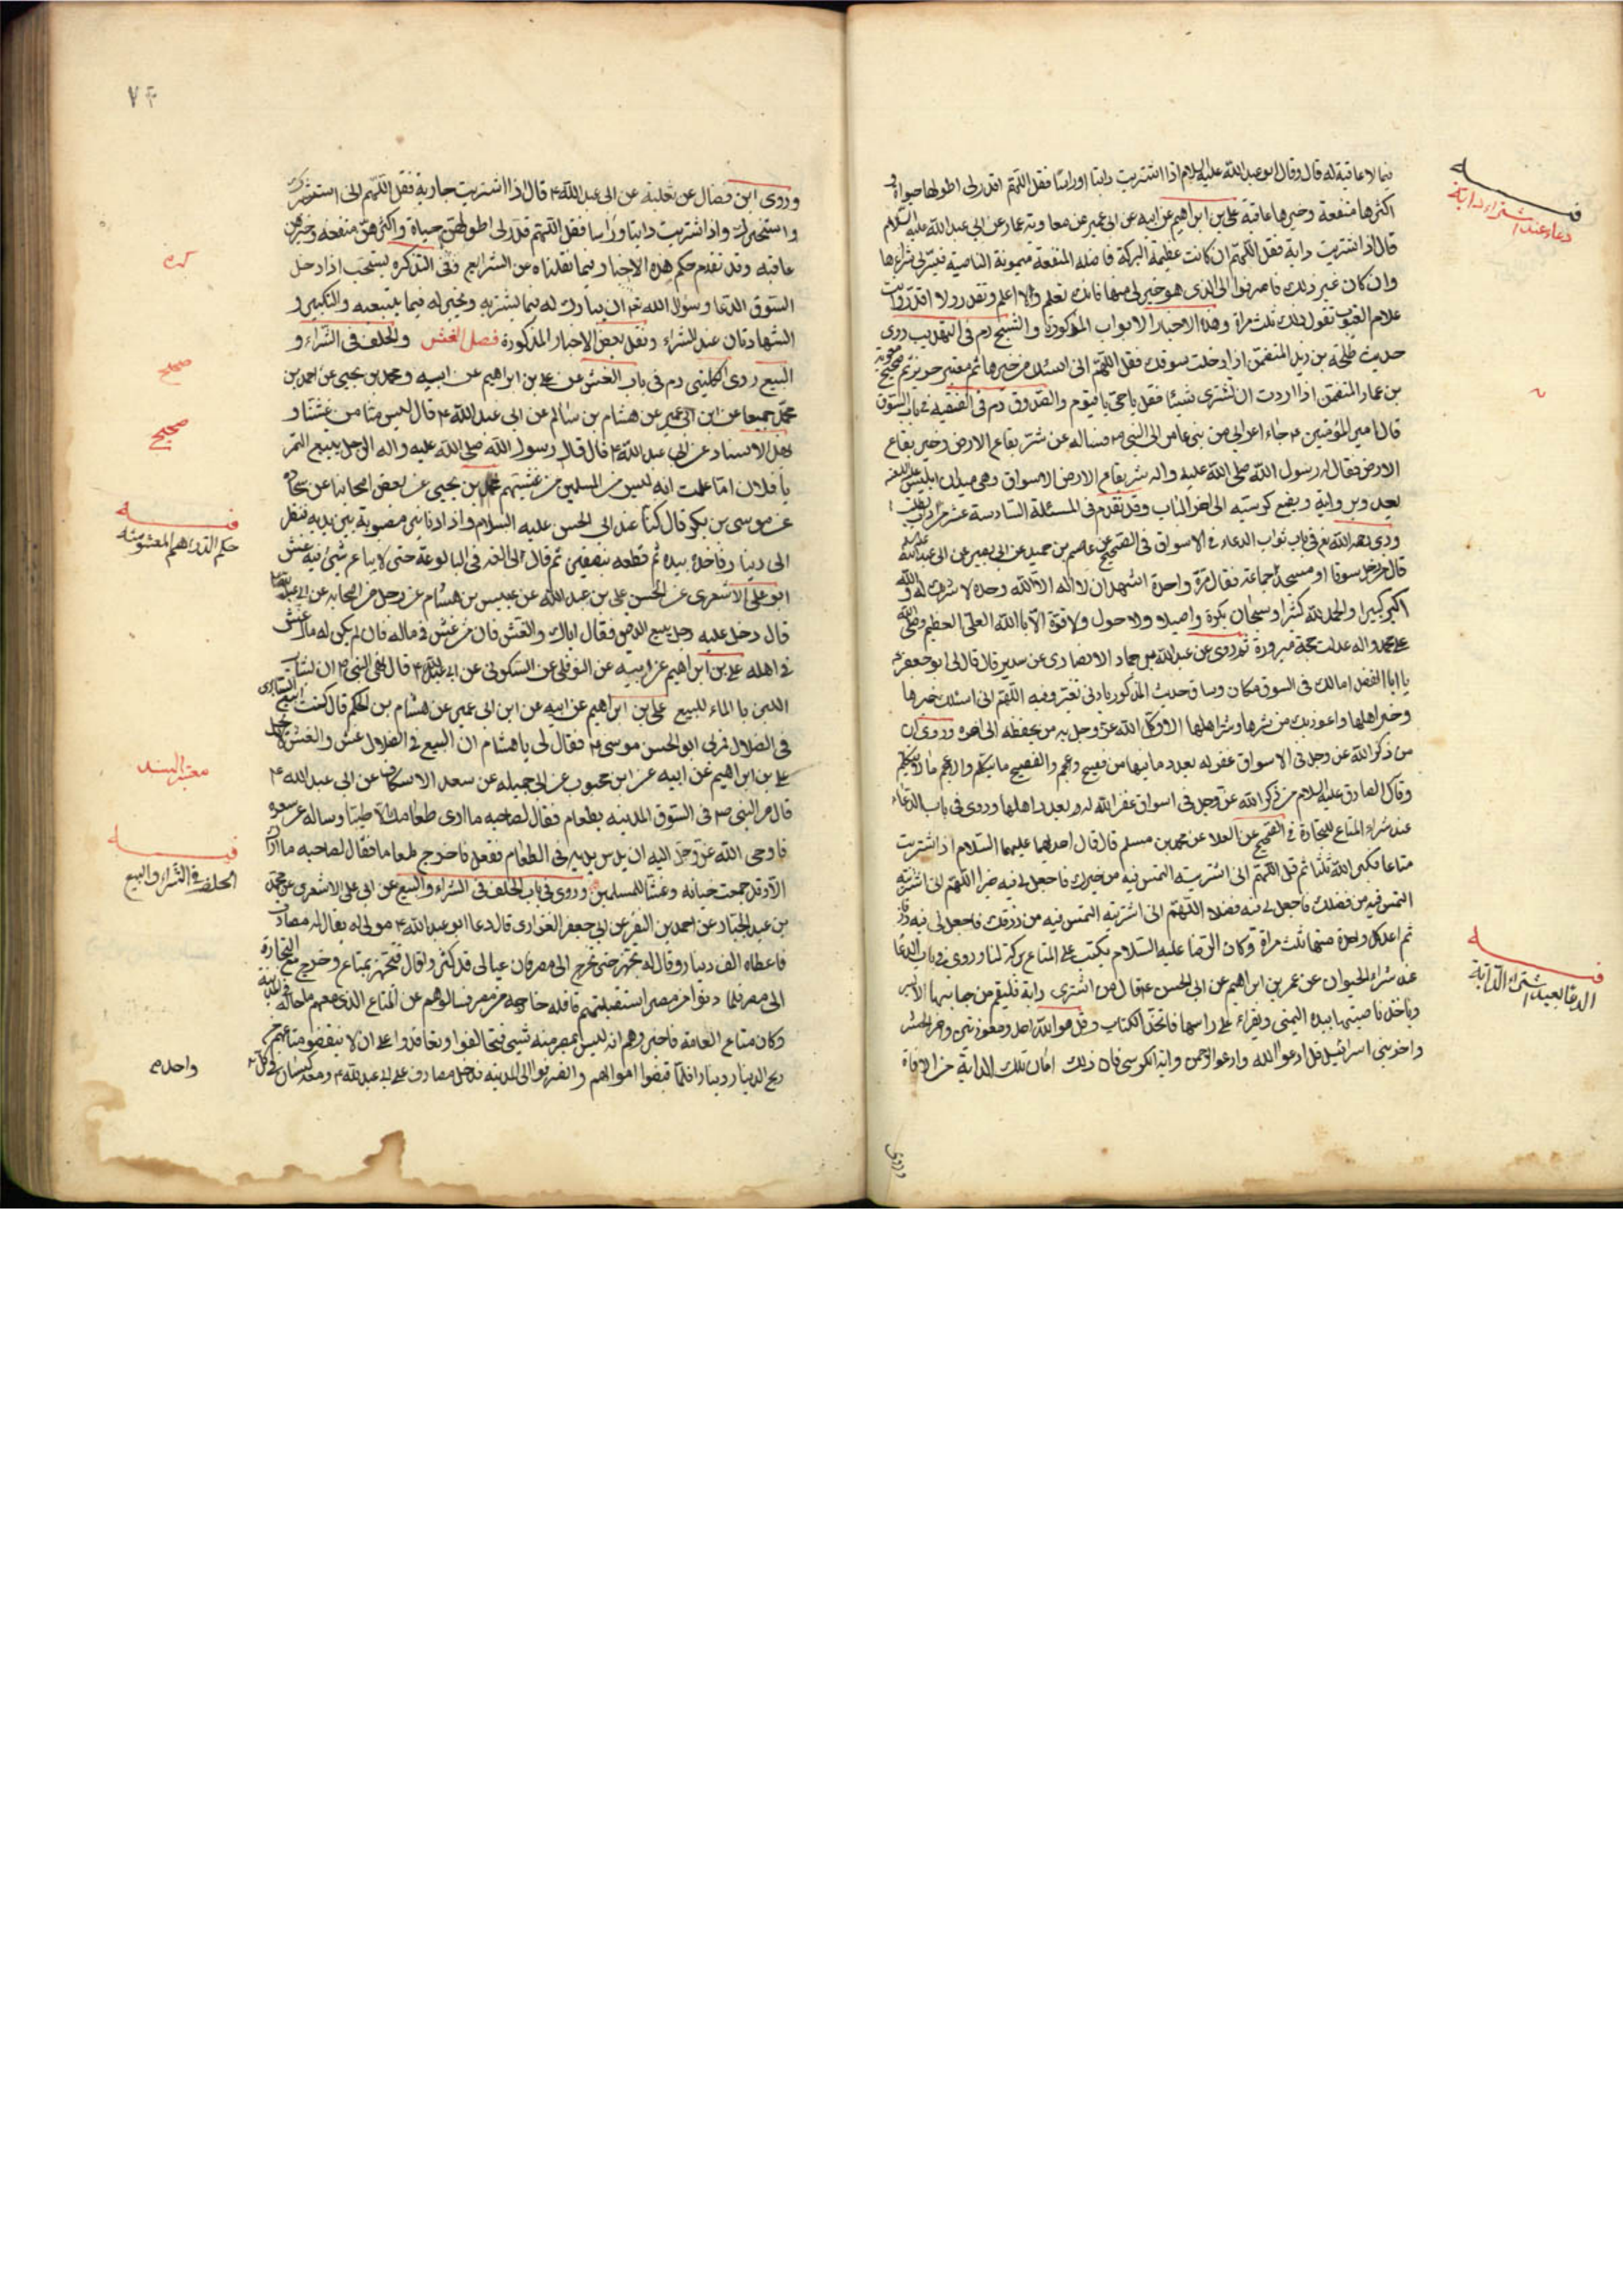 فيما لا عاقبة له قال وقال ابو عبد الله عليه السلام اذا اشتريت دابة او راسا فقل اللهم اقدر لي اطولها حيوة و
اكثرها منفعة وخيرها عاقبة على بن ابراهيم عن ابيه عن ابن ابى عمير عن معاوية بن عمار عن ابي عبد الله عليه السلام
قال اذا اشتريت دابة فقل اللهم ان كانت عظيمة البركة فاضلة المنفعة ميمونة الناصية فيسر لي شراءها
وان كان غير ذلك فاصرفنى الى الذى هو خير لى منها فانك تعلم ولا اعلم وتقدر ولا اقدر وانت
علام الغيوب تقول ذلك ثلث مراة وهذه الاخبار الابواب المذكورة والشيخ ره فى التهذيب روى
حديث طلحة بن زيد المتضمن اذا دخلت سوقك فقل اللهم انى اسئلك من خيرها ثم معتبر حريز ثم صحيح معوية
بن عمار المتضمن اذا اردت ان تشترى شيئا فقل يا حى يا قيوم والصدوق ره فى الفقيه في باب السوق
قال امير المؤمنين ع جاء اعرابى من بنى عامر الى النبى ص فساله عن شر بقاع الارض وخير بقاع
الارض فقال له رسول الله صلى الله عليه واله شر بقاع الارض الاسواق وهى ميدان ابليس عليه اللعنة
يغدو برايته ويضع كرسيه الى اخر الباب وقد تقدم فى المسئلة السادسة عشر
وروى رحمه الله نع فى باب ثواب الدعاء في الاسواق فى الصحيح عن عاصم بن حميد عن ابى بصير عن ابى عبد الله عليه السلام
قال من دخل سوقا او مسجد جماعة فقال مرة واحدة اشهد ان لا اله الا الله وحده لا شريك له والله
اكبر كبيرا والحمد لله كثيرا وسبحان بكرة واصيلا ولا حول ولا قوة الا بالله العلي العظيم وصلى الله
على محمد واله عدلت حجة مبرورة ثم روى عن عبد الله بن حماد الانصارى عن سدير قال قال لى ابو جعفر ع
يا ابا الفضل امالك فى السوق مكان وساق حديث المذكور بادنى تغير وفيه اللهم انى اسئلك خيرها
وخير اهلها واعوذ بك من شرها وشر اهلها الا وكل الله عز وجل به من يحفظه الى اخره وروى ان
من ذكر الله عز وجل فى الاسواق غفر له بعدد ما فيها من فصيح وعجم والفصيح ما يتكلم والاعجم ما لا يتكلم
وقال الصادق عليه السلام من ذكر الله عز وجل فى اسواق غفر الله له بعدد اهلها وروى فى باب الدعاء
عند شراء المتاع للتجارة في الصحيح عن العلا عن محمد بن مسلم قال قال احدهما عليهما السلام اذا اشتريت
متاعا فكبر الله ثلثا ثم قل اللهم انى اشتريته التمس فيه من خيرك فاجعل لى فيه خيرا اللهم انى اشتريته
التمس فيه من فضلك فاجعل لى فيه فضلا اللهم انى اشتريته التمس فيه من رزقك فاجعل لى فيه رزقا
ثم اعد كل واحدة منها ثلث مراة وكان الرضا عليه السلام يكتب على المتاع بركة لنا وروى في باب الدعا
عند شراء الحيوان عن عمر بن ابراهيم عن ابى الحسن ع قال من اشترى دابة فليقم من جانبها الايسر
وياخذ ناصيتها بيده اليمنى ويقراء على راسها فاتحة الكتاب وقل هو الله احد ومعوذتين واخر الحشر
واخر بنى اسرائيل قل ادعوا الله وادعوا الرحمن واية الكرسى فان ذلك امان تلك الدابة من الافاة
وروى
فيه
دعاء عند اشتراء دابة
فيه
الدعا بعيد اشتراء الدابة
۷۴
وروى ابن فضال عن ثعلبة عن ابى عبد الله ع قال اذا اشتريت جارية فقل اللهم انى استشيرك
واستخيرك واذا اشتريت دابة او راسا فقل اللهم قدر لى اطولهن حياة واكثرهن منفعة وخيرهن
عاقبة وقد تقدم حكم هذه الاخبار فيما نقلناه عن الشرايع وفى التذكره يستحب اذا دخل
السوق الدعا وسؤال الله تع ان يبارك له فيما يشتريه ويخير له فيما يبيعه والتكبير و
الشهادتان عند الشراء ونقل بعض الاخبار المذكورة فصل الغش والحلف فى الشراء و
البيع روى الكلينى ره فى باب الغش عن على بن ابراهيم عن ابيه ومحمد بن يحيى عن احمد بن
محمد جميعا عن ابن ابى عمير عن هشام بن سالم عن ابى عبد الله ع قال ليس منا من غشنا و
بهذا الاسناد عن ابى عبد الله ع قال قال رسول الله صلى الله عليه واله الرجل يبيع التمر
يا فلان اما علمت انه ليس من المسلمين من غشهم محمد بن يحيى عن بعض اصحابنا عن سجادة
عن موسى بن بكر قال كنا عند ابى الحسن عليه السلام واذا دنانير مصبوبة بين يديه فنظر
الى دينار فاخذه بيده ثم قطعه بنصفين ثم قال لى القه فى البالوعة حتى لا يباع شئ فيه غش
ابو على الاشعرى عن الحسن على بن عبد الله عن عبيس بن هشام عن رجل من اصحابه عن ابى عبد الله ع
قال دخل عليه رجل يبيع الدقيق فقال اياك والغش فان من غش فى ماله فان لم يكن له مال غش
في اهله على بن ابراهيم عن ابيه عن النوفلى عن السكونى عن ابى عبد الله ع قال نهى النبى ص ان يشاب
اللبن بالماء للبيع على بن ابراهيم عن ابيه عن ابن ابى عمير عن هشام بن الحكم قال كنت ابيع السابرى
فى الظلال فمر بى ابو الحسن موسى ع فقال لى يا هشام ان البيع في الظلال غش والغش لا يحل
على بن ابراهيم عن ابيه عن ابن محبوب عن ابى جميله عن سعد الاسكاف عن ابى عبد الله ع
قال مر النبى ص فى السوق المدينه بطعام فقال لصاحبه ما ارى طعامك الا طيبا وساله عن سعره
فاوحى الله عز وجل اليه ان يدس يديه فى الطعام ففعل فاخرج طعاما فقال لصاحبه ما اراك
الا وقد جمعت خيانة وغشا للمسلمين وروى فى باب الحلف فى الشراء والبيع عن ابى على الاشعرى عن محمد
بن عبد الجبار عن احمد بن النضر عن ابى جعفر الفزارى قال دعا ابو عبد الله ع مولى له يقال له مصادف
فاعطاه الف دينار وقال له تجهز حتى تخرج الى مصر فان عيالى قد كثروا قال فتجهز بمتاع وخرج مع التجارة
الى مصر فلما دنوا من مصر استقبلتهم قافلة خارجه من مصر فسالوهم عن المتاع الذى معهم ما حاله فى المدينة
وكان متاع العامة فاخبروهم انه ليس بمصر منه شئ فتحالفوا وتعاقدوا على ان لا ينقضوا متاعهم من
ربح الدينار دينارا فلما قبضوا اموالهم وانصرفوا الى المدينه فدخل مصادف على ابى عبد الله ع ومعه كيسان فى كل
صحيح
صحيح
فيه
حكم الدراهم المغشوشه
معتبر السند
فيه
الحلف في الشراء والبيع
واحد